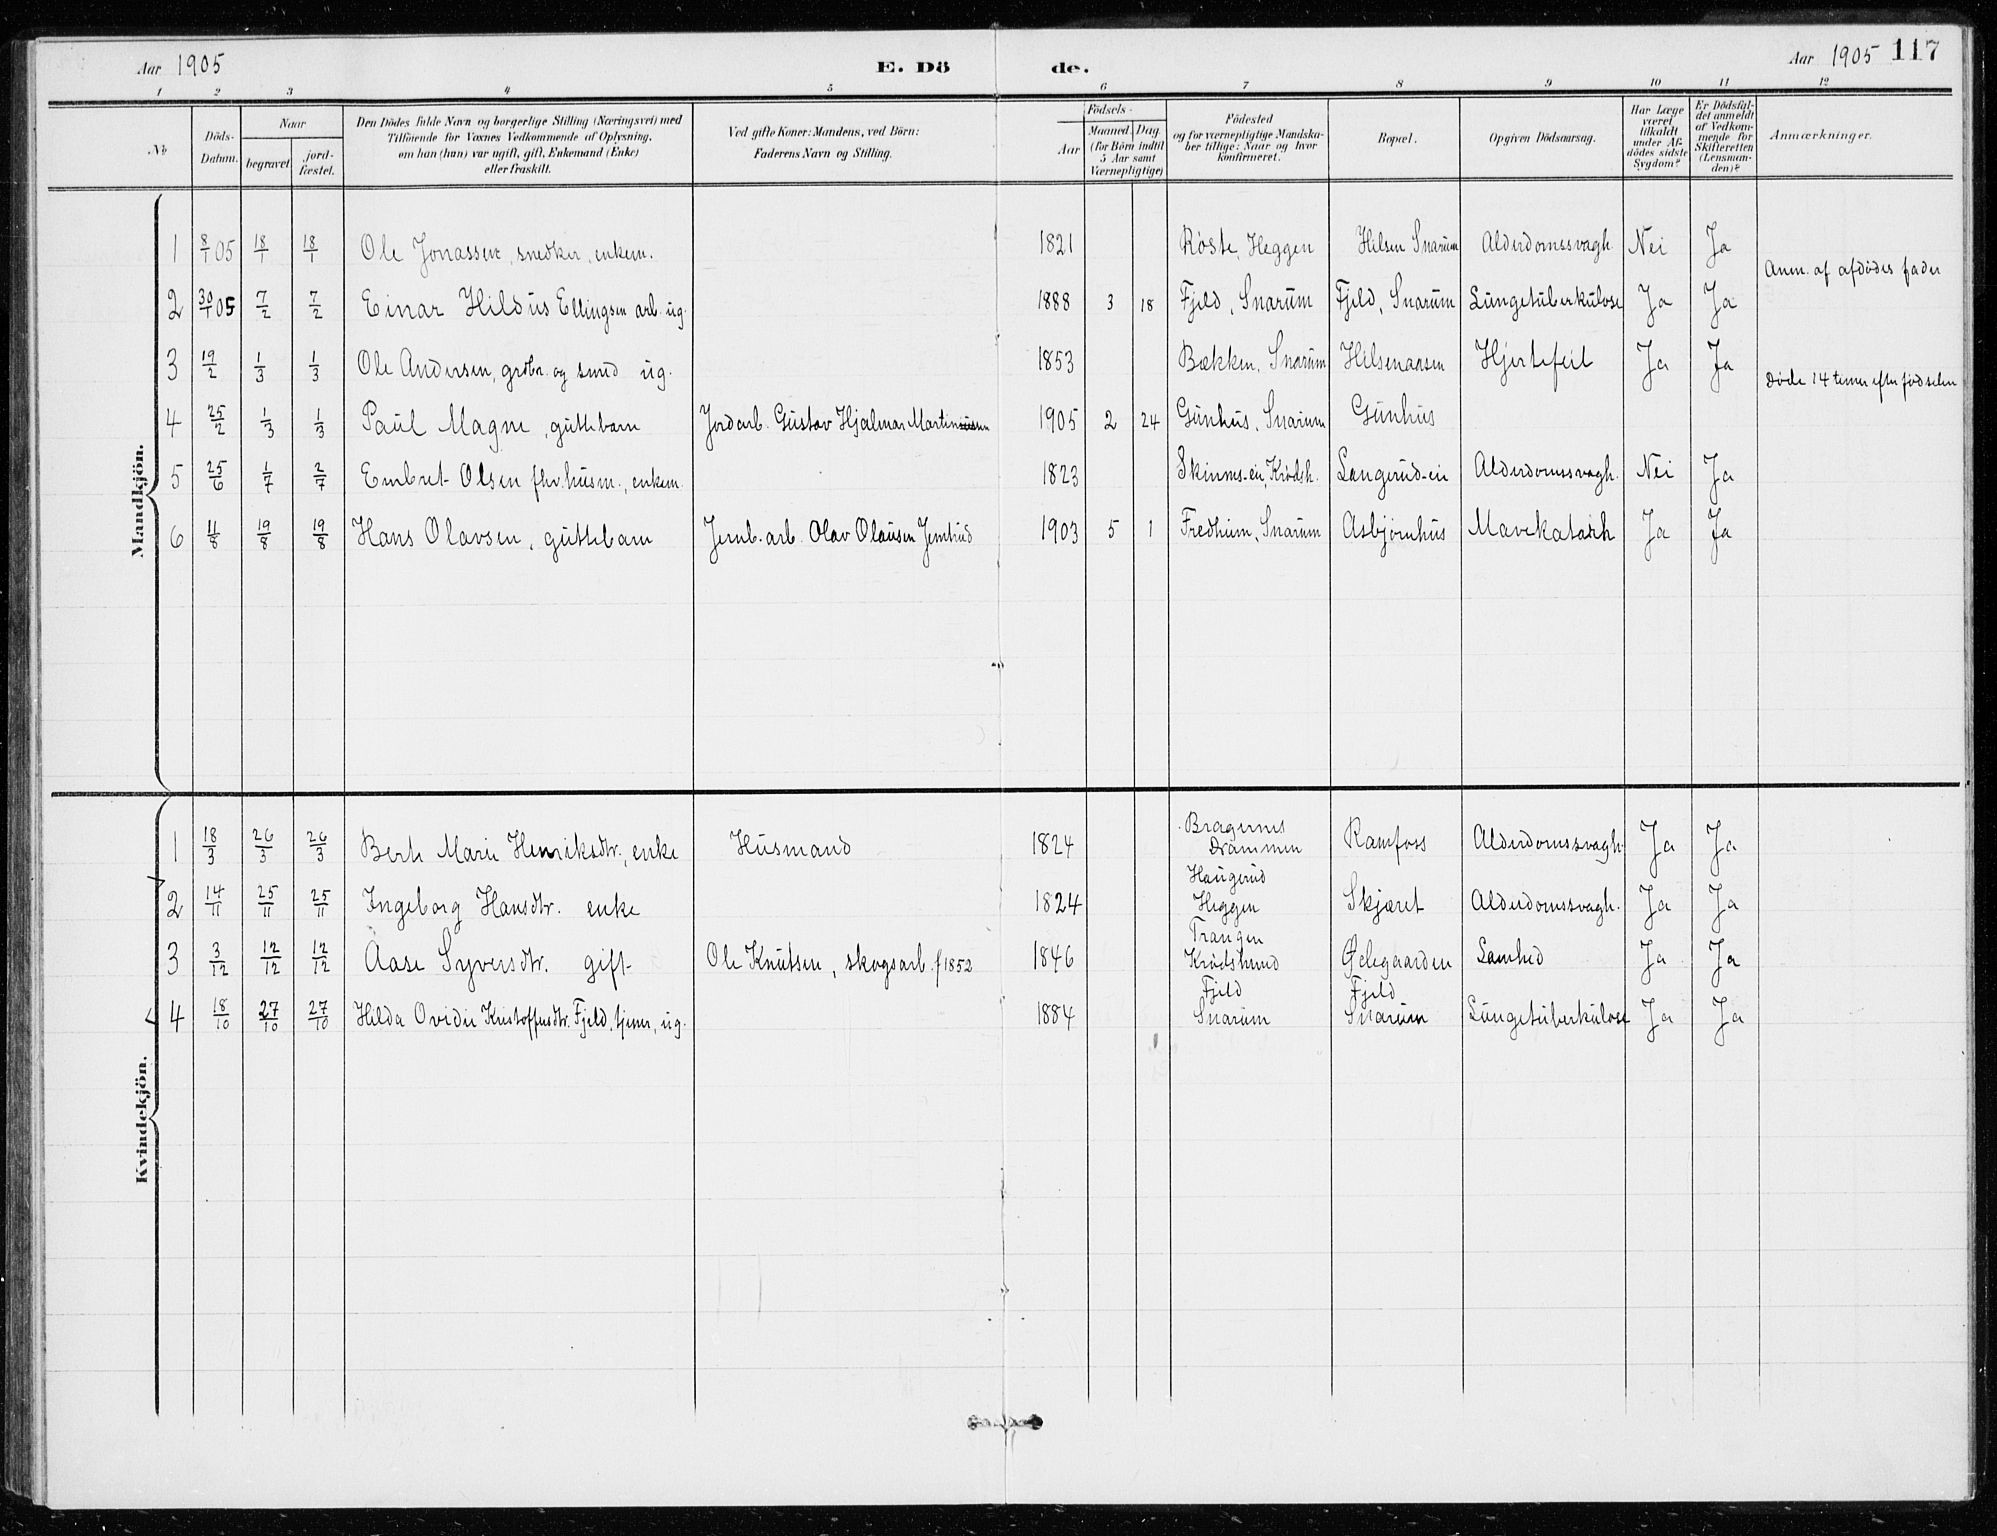 Aar 1905 E. Dö de. Aar 1905 117
1 2 3 4 5 6 7 8 9 10 11 12
No. Döds-Datum. Naar begravet jord-fæstet.
Den Dödes fulde Navn og borgerlige Stilling (Næringsvei) med
Tilföiende for Voxnes Vedkommende af Oplysning,
om han (hun) var ugift, gift, Enkemand (Enke)
eller fraskilt.
Ved gifte Koner: Mandens, ved Börn:
Faderens Navn og Stilling.
Födsels-
Aar Maaned. Dag.
(for Börn indtil
5 Aar samt
Værnepligtige)
Födested
og for værnepligtige Mandska-
ber tillige: Naar og hvor
konfirmeret.
Bopæl.
Opgiven Dödsaarsag.
Har Læge
været
tilkaldt
under Af-
dödes sidste
Sygdom?
Er Dödsfal-
det anmeldt
af Vedkom-
mende for
Skifteretten
(Lensman-
den)?
Anmærkninger.
Mandkjön.
1 8/1 05 18/1 18/1 Ole Jonassen, snedker, enkem. 1821 Røste, Heggen Hilsen Snarum Alderdomssvagh. Nei Ja
Anm. af afdødes fader
2 30/1 05 7/2 7/2 Einar Hildus Ellingsen arb. ug. 1888 3 18 Fjeld, Snarum Fjeld, Snarum Lungetuberkulose Ja Ja
3 19/2 1/3 1/3 Ole Andersen, grdbr. og smed ug. 1853 Bækken, Snarum Hilsenaasen Hjertefeil Ja Ja
Døde 14 timer efter fødselen
4 25/2 1/3 1/3 Paul Magne, guttebarn Jordarb. Gustav Hjalmar Martinsen 1905 2 24 Gunhus, Snarum Gunhus
5 25/6 1/7 2/7 Embret Olsen fhv. husm., enkem. 1823 Skinnes-eie, Krødsh. Langerud-eie Alderdomssvagh. Nei Ja
6 11/8 19/8 19/8 Hans Olavsen, guttebarn Jernb. arb. Olav Olausen Jemtrud 1903 5 1 Fredheim, Snarum Asbjørnhus Mavekatarrh Ja Ja
Kvindekjön.
1 18/3 26/3 26/3 Berte Marie Henriksdtr., enke Husmand 1824 Bragernes Drammen Ramfoss Alderdomssvagh. Ja Ja
2 14/11 25/11 25/11 Ingeborg Hansdtr. enke 1824 Haugerud Heggen Skjæret Alderdomssvagh. Ja Ja
3 3/12 12/12 12/12 Aase Syversdtr. gift Ole Knutsen, skogsarb. f 1852 1846 Trangen Krødsherred Ødegaarden Lamhed Ja Ja
4 18/10 27/10 27/10 Hilda Ovidie Kristoffersdtr. Fjeld, tjener, ug. 1884 Fjeld Snarum Fjeld Snarum Lungetuberkulose Ja Ja